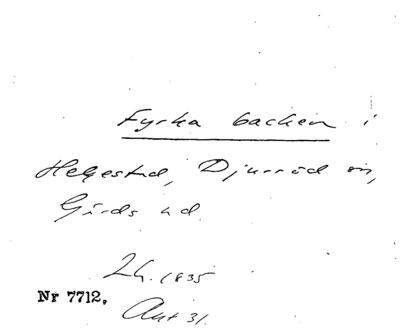 Fyrka backen i
Helgestad, Djurröd sn,
Gärds hd.
Lh. 1835
Nr 7712.
Akt 31.